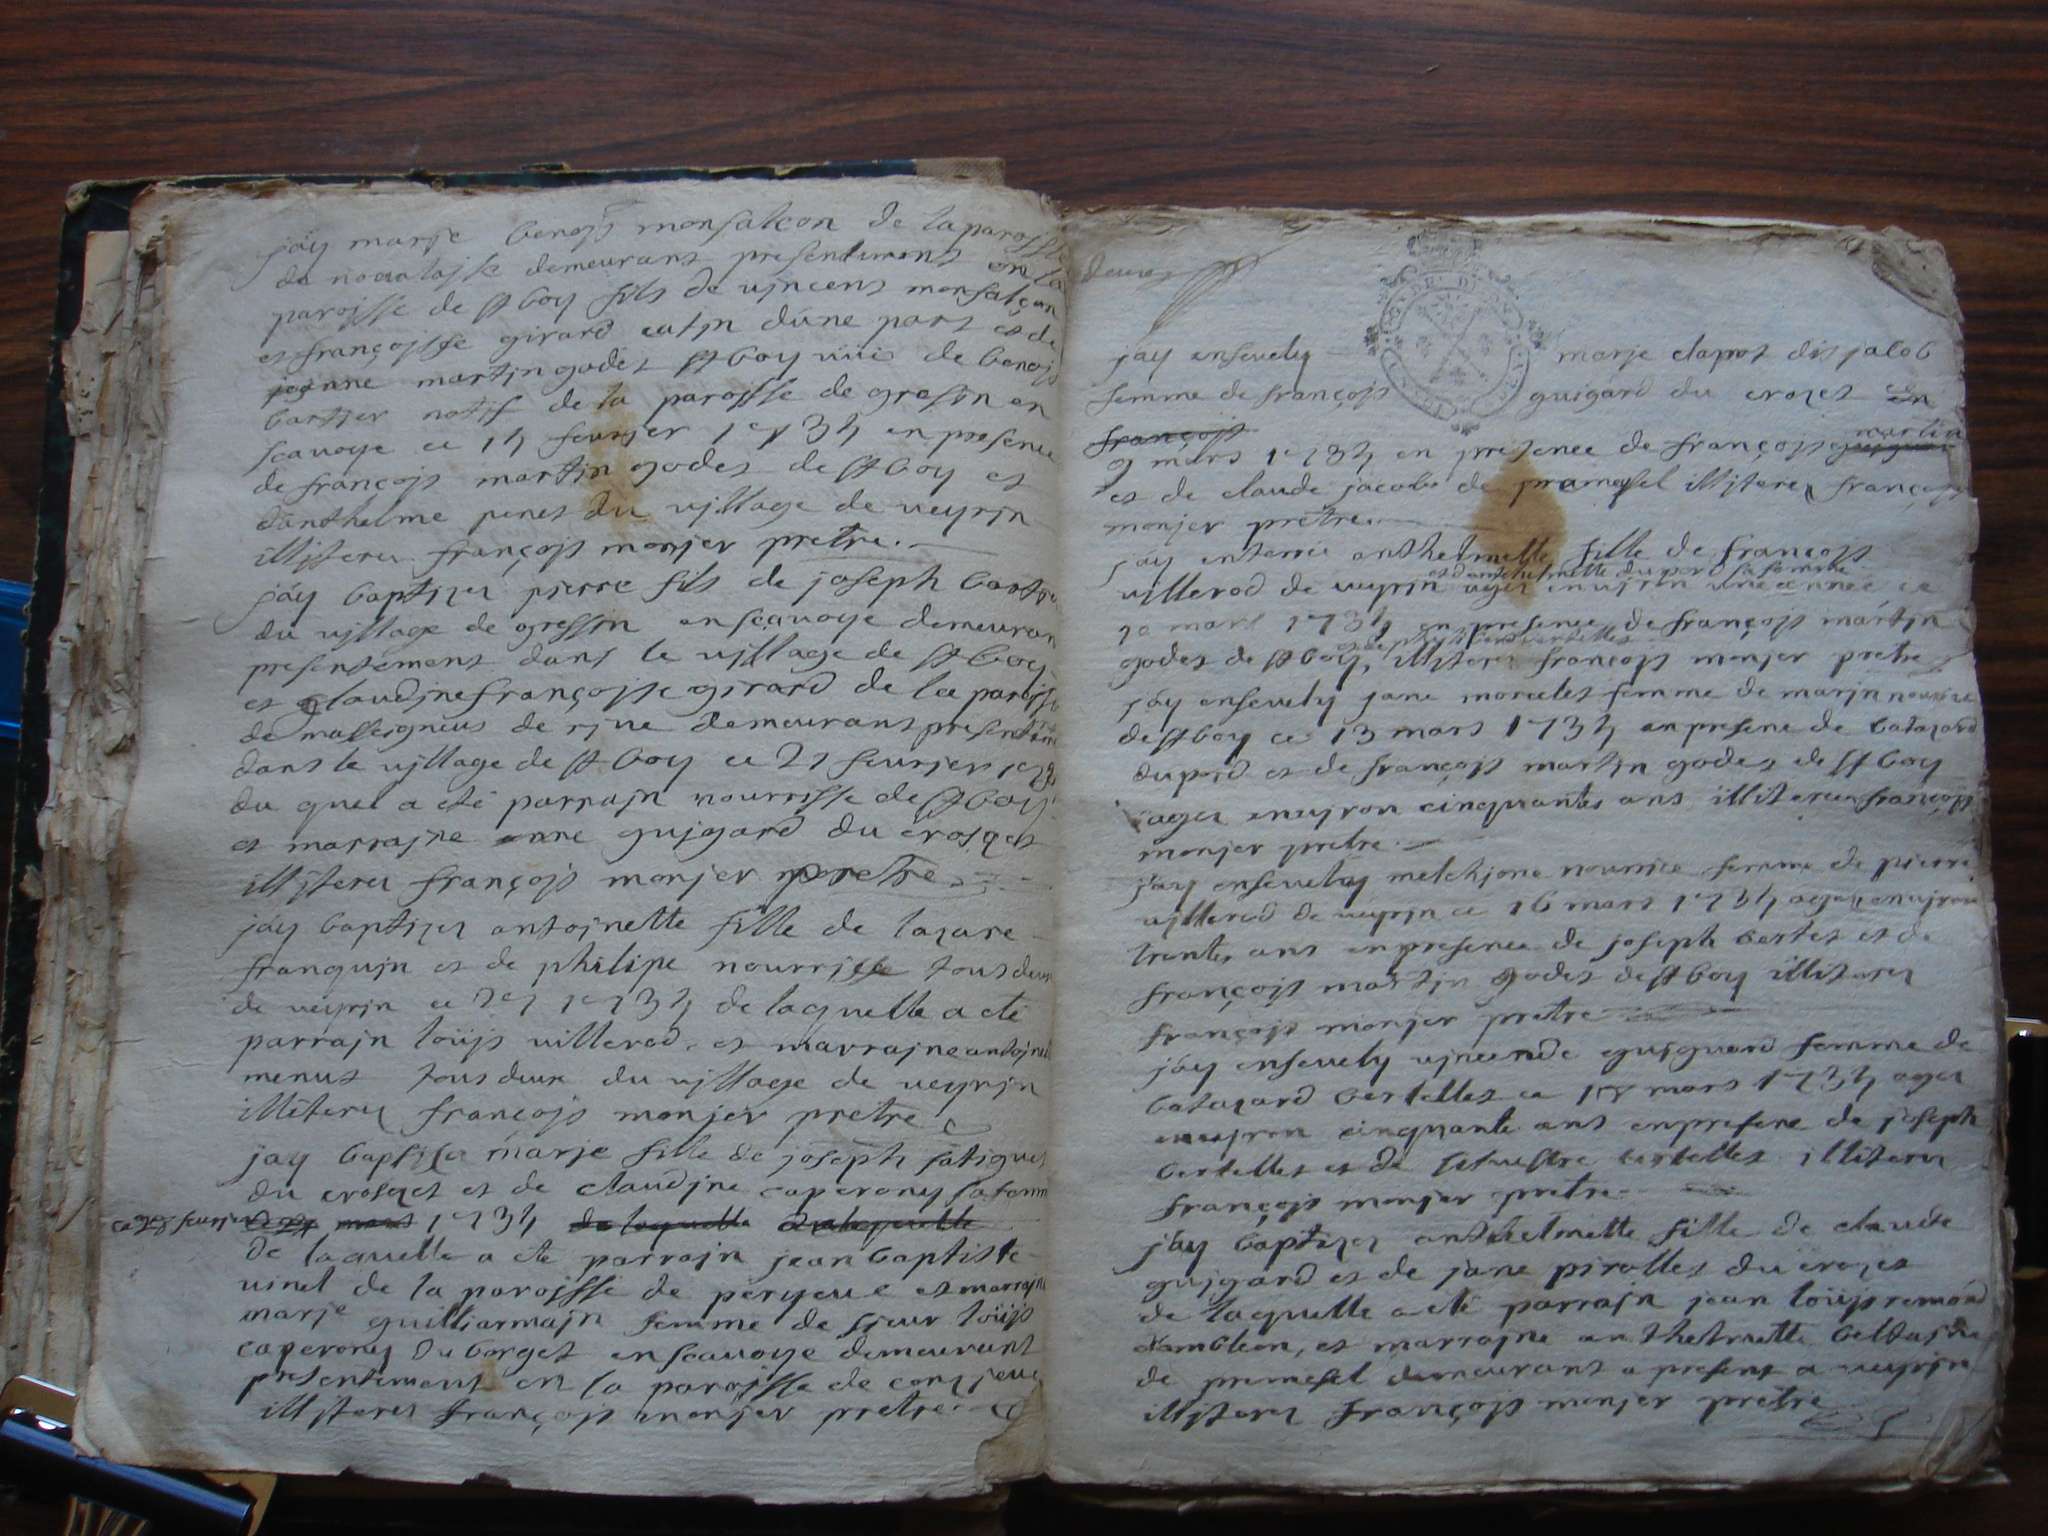 jáy marje benois monfalcon de la paroisse
de novalaisse demeurans presentement en la
paroisse de st boy fils de vincens monfalcon
et françoisse girard d'une part et de
jeanne martin godet st boy de benois
bartier natif de la paroisse de gresin en
scavoye ce 14 fevrier 1734 en presence
de françois martin godet de st boy et
d'anthelme penet du village de veyrin
illiteres françois monjer pretre.
jáy baptizer pierre fils de joseph
du village de gressin en scavoye demeuran
presentement dans le village de st boy
et claudjne françoisse girard de la paroisse
de massignieus de rive demeurant presentem
dans le village de st boy ce 21 fevrier
du quel a eté parrajn nourrisse de st boy
et marrajne anne gujgard du
illjteres françois monjer pretre
jáy baptizer antojnette fille de lazare
franquin et de philipe nourrisse tous deux
de veyrin ce 1734 de laquelle a eté
parrajn loüjs villerod et marrajne antojne
menus tous deux du village de veyrjn
illiteres françois monjer pretre
jay baptiser marje fille de joseph fatigues
du et de claudjne caperony sa femm
ce fevrier mars 1734 de laquelle de laquelle
de laquelle a eté parrajn jean baptiste
vinel de la paroisse de peryeus et marrajn
marje guilliarmajn femme de sieur loüjs
caperony du borget en scavoye demeurant
presentement en la paroisse de conzieus
illjteres françois monjer pretre
jáy ensevely marje clapot dit jacob
femme de françois guigard du crozet
françois
9 mars 1734 en presence de françois martin
et de claude jacob de premeysel illjteres françois
monjer pretre
jáy enterrée anthelmette fille de françois
et d'anthelmette dupord sa femme
villerod de veyrin agée environ une année ce
10 mars 1734 en presence de françois martin
godet de st boy, illjteres françois monjer pretre
jáy ensevely jane morcelet femme de marjn nourrice
de st boy ce 13 mars 1734 en presence de batazard
dupord et de françois martjn godet de st boy
ages environ cinquantes ans illiteres françois
monjer pretre
jáy ensevely melchjone nourrice femme de pierre
villerod de veyrjn ce 16 mars 1734 agée environ
trentes ans en presence de joseph bertet et de
françois martjn godet de st boy illiteres
françois monjer pretre
jáy ensevely vjncende gujguard femme de
batazard bertellet ce 18 mars 1734 agee
environ cinquante ans en presence de joseph
bertellet et de silvestre bertellet illiteres
françois monjer pretre
jáy baptizer anthelmette fille de claude
gujgard et de jane pirollet du crozet
de laquelle a eté parrajn jean loüjs remond
d'ambleon, et marrajne anthelmette
de premesel demeurant a present a veyrjn
illjteres françois monjer pretre